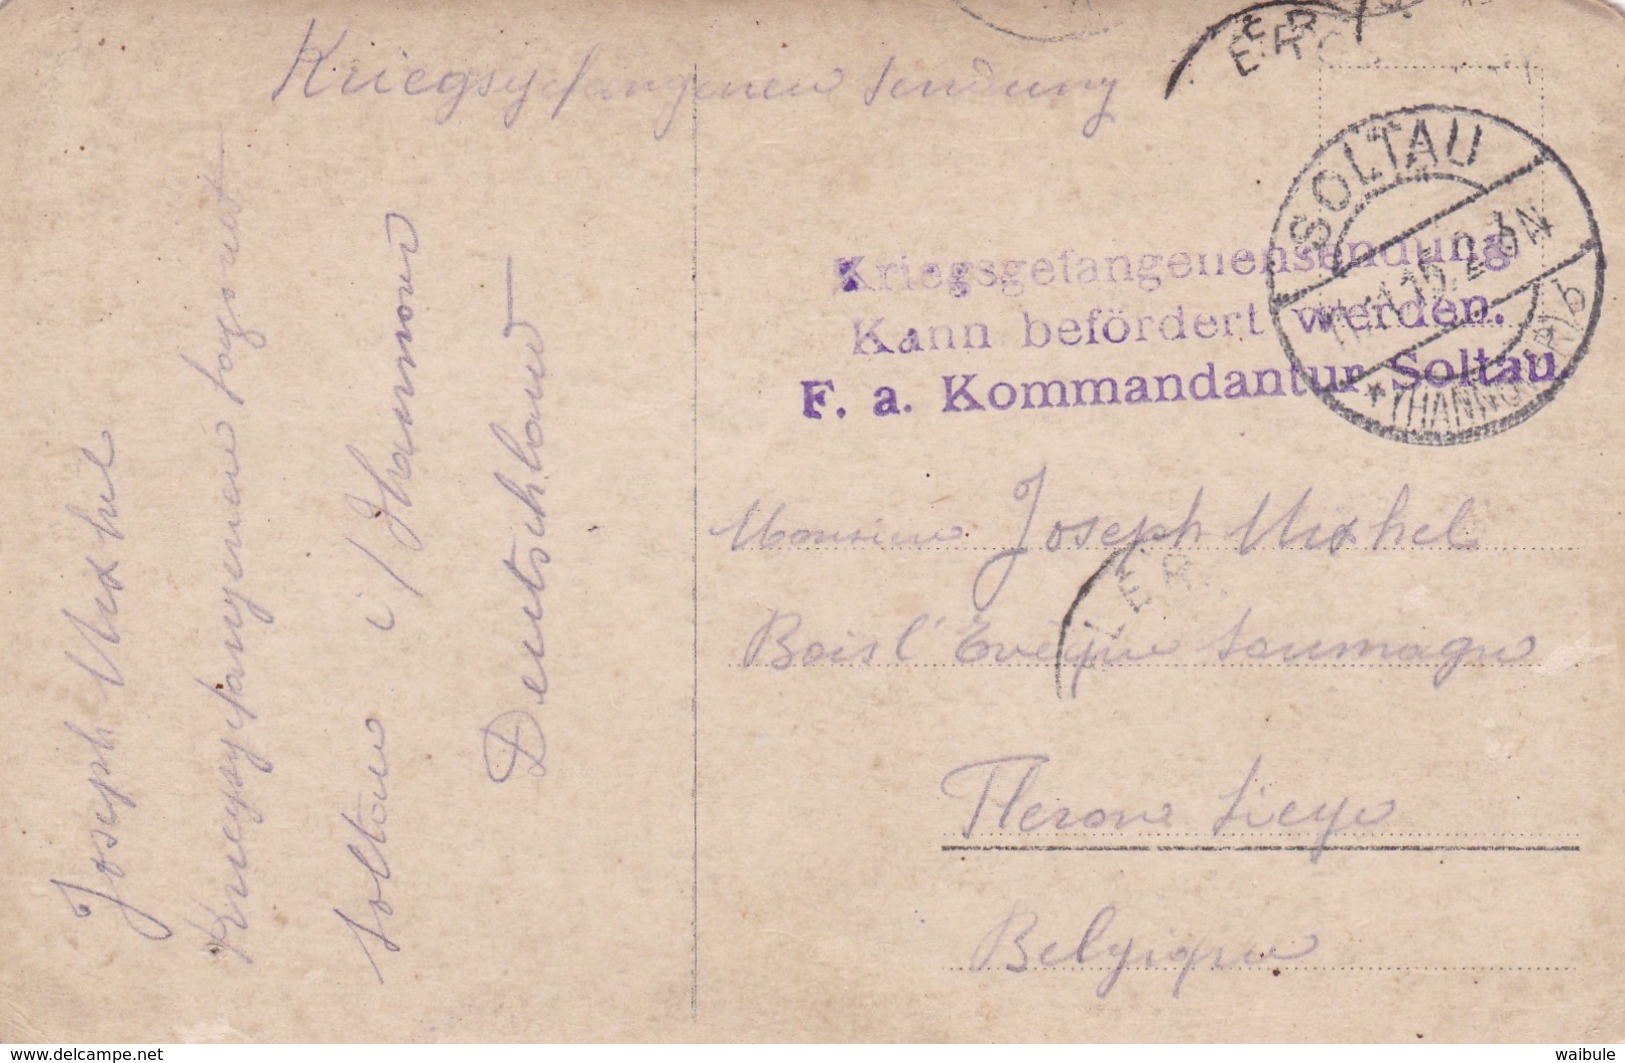 Kriegsgefangenen Sendung
SOLTAU
(HANNOVER) b
Kriegsgefangenensendung
Kann befördert werden.
F. a. Kommandantur Soltau
Monsieur Joseph
Bois l'Evêque Soumagne
Fleron Liege
Belgique
Joseph
Kriegsgefangenen
Soltau i/ Hannover
Deutschland
www.delcampe.net
waibule